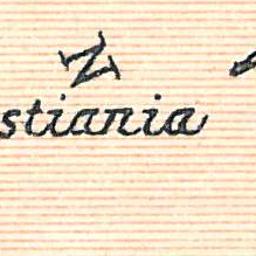 N
stiania